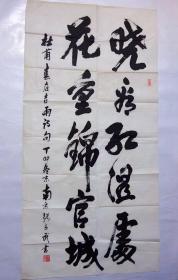 晓看红湿處
花重錦官城
杜甫春夜喜雨诗句 丁卯冬